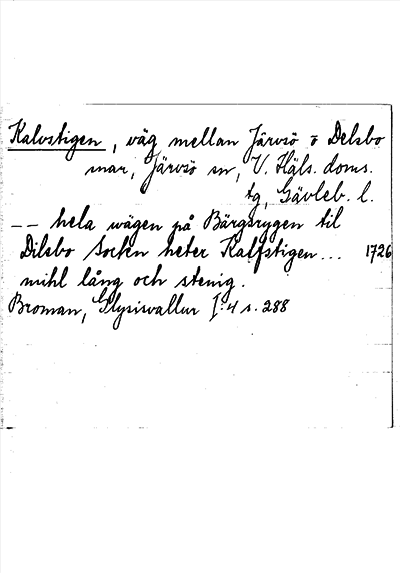 Kalvstigen, väg mellan Järvsö o Delsbo
mar, Järvsö sn, V. Häls. doms.
tg, Gävleb. l.
-- hela wägen på Bärgsrygen til
Dilsbo Sockn heter Kalfstigen... 1726
mihl lång och stenig.
Broman, Glysisvallur I:4 s. 288